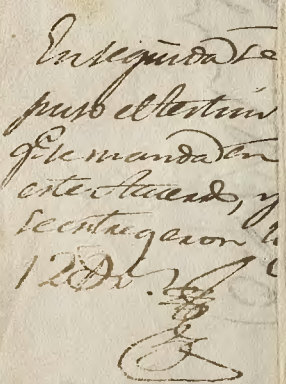 En seguida se
puso el testim
q.e se manda en
este Acuerdo, y
se entregaron
12 Dr.